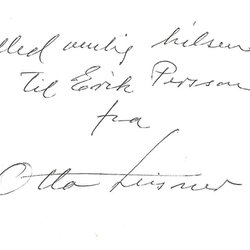 Med venlig hilsen
Til Erik Persson
fra
Otto Leisner